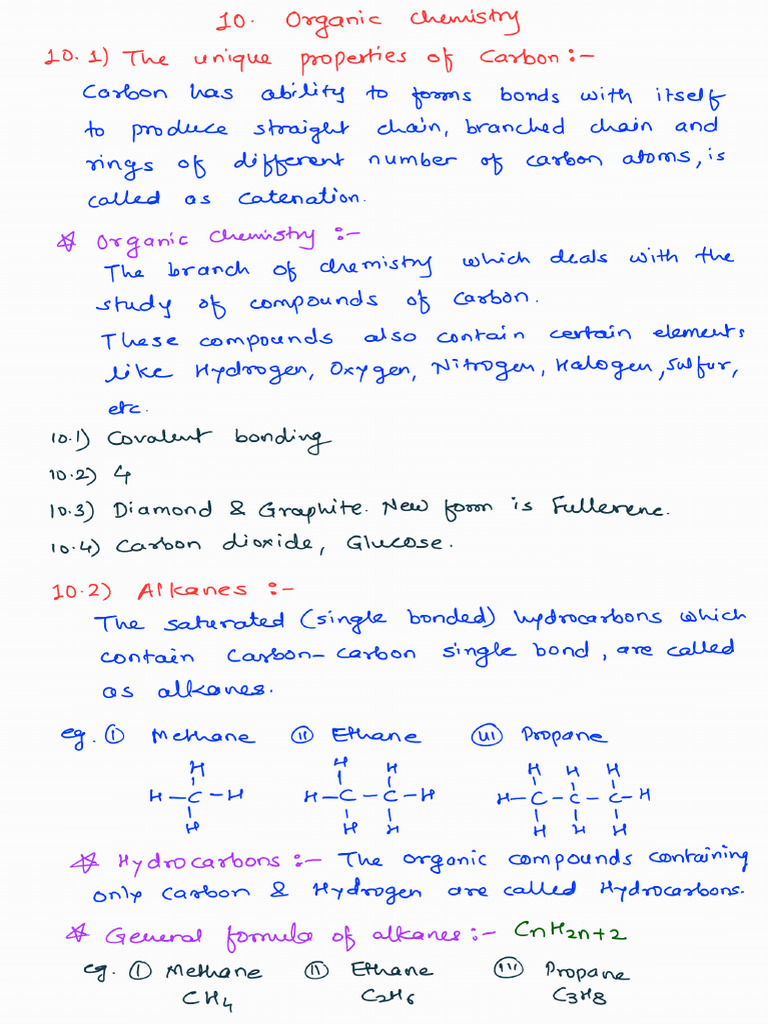 10. Organic chemistry
10.1) The unique properties of Carbon:-
Carbon has ability to forms bonds with itself
to produce straight chain, branched chain and
rings of different number of carbon atoms, is
called as Catenation.
☆ Organic chemistry :-
The branch of chemistry which deals with the
study of compounds of carbon.
These compounds also contain certain elements
like Hydrogen, Oxygen, Nitrogen, Halogen, Sulfur,
etc.
10.1) Covalent bonding
10.2) 4
10.3) Diamond & Graphite. New form is Fullerene.
10.4) Carbon dioxide, Glucose.
10.2) Alkanes :-
The saturated (single bonded) hydrocarbons which
contain Carbon-carbon single bond, are called
as alkanes.
eg. (i) Methane (ii) Ethane (iii) Propane
H H H H H H
H-C-H H-C-C-H H-C-C-C-H
H H H H H H
☆ Hydrocarbons :- The organic compounds containing
only Carbon & Hydrogen are called Hydrocarbons.
☆ General formula of alkanes :- CnH2n+2
eg. (i) Methane (ii) Ethane (iii) Propane
CH4 C2H6 C3H8